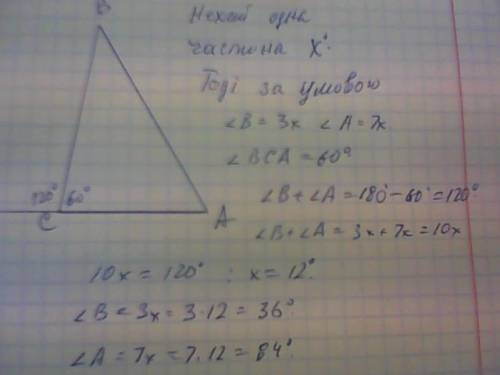 B
Нехай одна
частина x°.
Тоді за умовою
∠B = 3x ∠A = 7x
∠BCA = 60°
120° 60°
C A
∠B + ∠A = 180° - 60° = 120°
∠B + ∠A = 3x + 7x = 10x
10x = 120° ; x = 12°.
∠B = 3x = 3·12 = 36°
∠A = 7x = 7·12 = 84°.